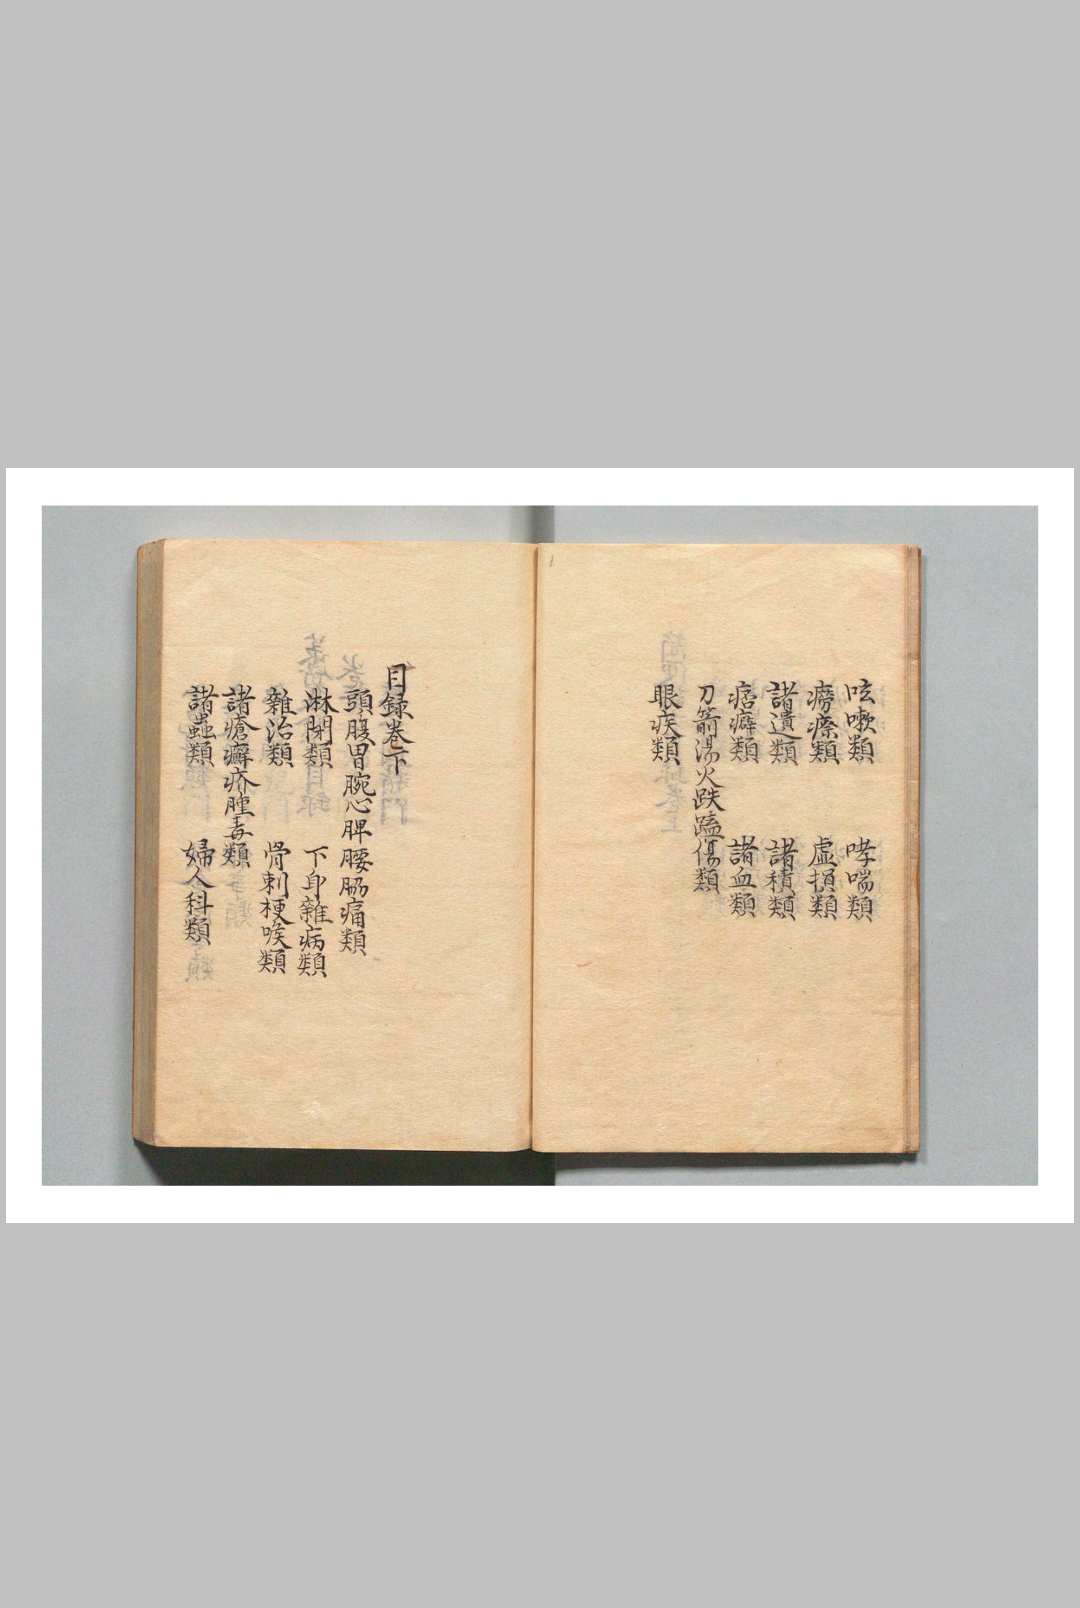 咳嗽類　哮喘類
癆瘵類　虛損類
諸遺類　諸積類
痞癖類　諸血類
刀箭湯火跌蹼傷類
眼疾類
目録卷下
頭腹胃腕心脾腰脇痛類
淋閉類　下身雜病類
雜治類　骨刺梗喉類
諸瘡癬疥腫毒類
諸蟲類　婦人科類